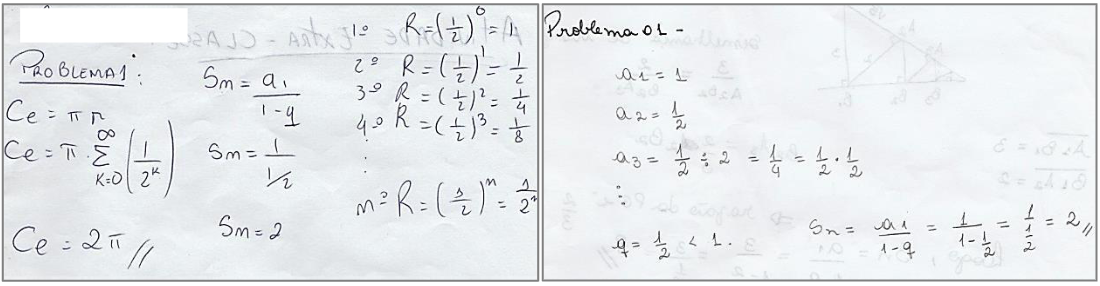 PROBLEMA1:
Ce = π r
Ce = π · ∞ Σ K=0 (1/2^k)
Ce = 2π //
Sn = a1/1-q
Sn = 1/1/2
Sn = 2
1º R = (1/2)^0 = 1
2º R = (1/2)^1 = 1/2
3º R = (1/2)^2 = 1/4
4º R = (1/2)^3 = 1/8
⋮
nº R = (1/2)^n = 1/2^n
Problema 01 -
a1 = 1
a2 = 1/2
a3 = 1/2 ÷ 2 = 1/4 = 1/2 · 1/2
⋮
q = 1/2 < 1.
Sn = a1/1-q = 1/1-1/2 = 1/1/2 = 2 //